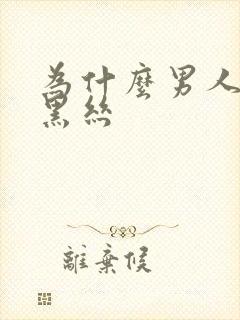 為什麼男人
黑絲
離棄候